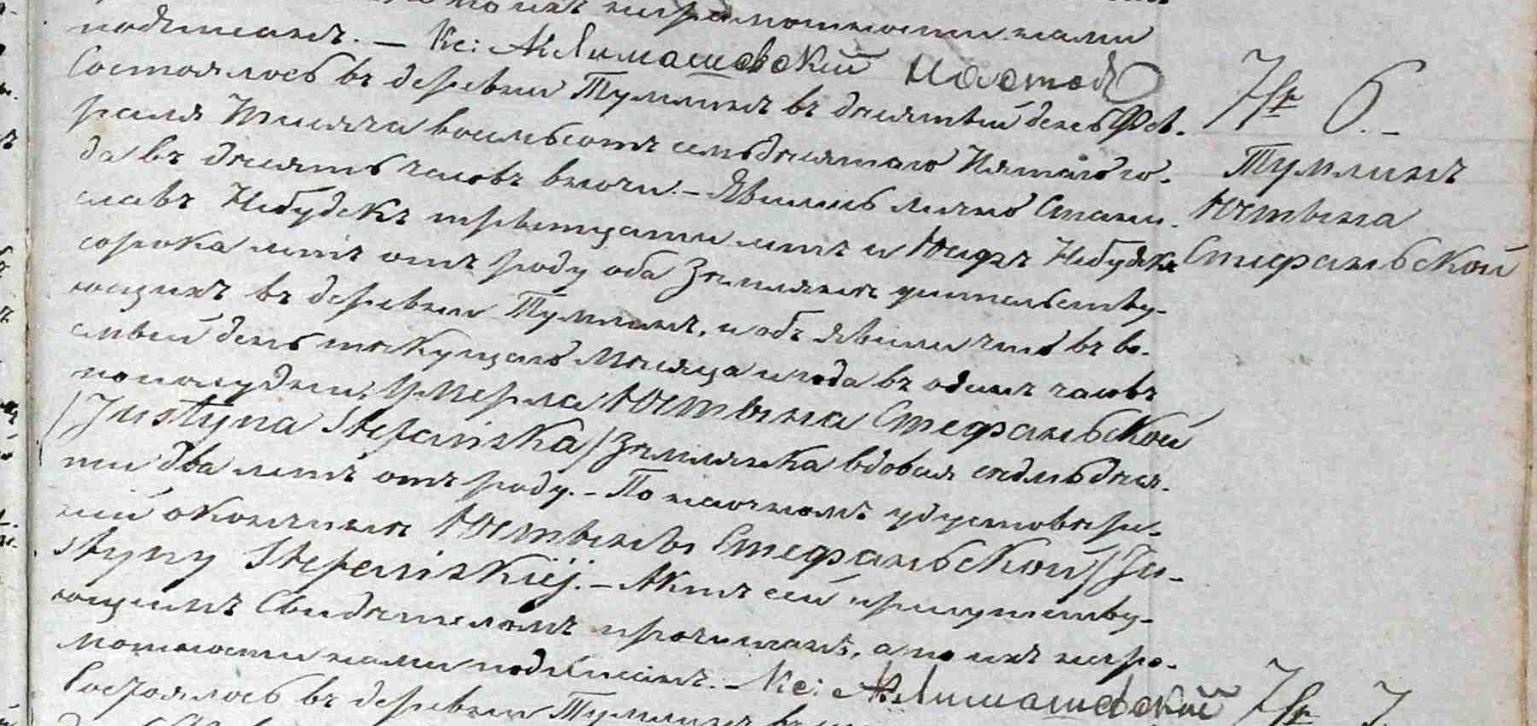 неграмотности нами
подписанъ. – Кс: А Лимашевский Настоя
Состоялось въ деревни Тумлинъ въ десятый день Фев-
раля Тысяча восемьсотъ семьдесятаго Пятаго го-
да въ десять часовъ вночи. – Явились лично Стани-
славъ Небудекъ тритцати летъ и Юзефъ Небудекъ
сорока летъ отъ роду оба Земляне жительству-
ющихъ въ деревни Тумлинъ, и объявили что въ во-
смый день текущаго Месяца и года въ одинъ часовъ
пополудни, умерла Юстына Стефаньской
/Justyna Stefańska/ Землянка вдовая седмьдеся-
ти два летъ отъ роду. – По наочномъ удустовере-
ній окончиня Юстыны Стефаньской /Ju-
styny Stefańskiéj. – Актъ сей присутству-
ющимъ Свидетелямъ прочитанъ, а по ихъ негра-
мотности нами подписанъ. – Кс: А Лимашевский
Состоялось въ деревни Тумлинъ
№ 6. –
Тумлинъ
Юстына
Стефаньской
№ 7